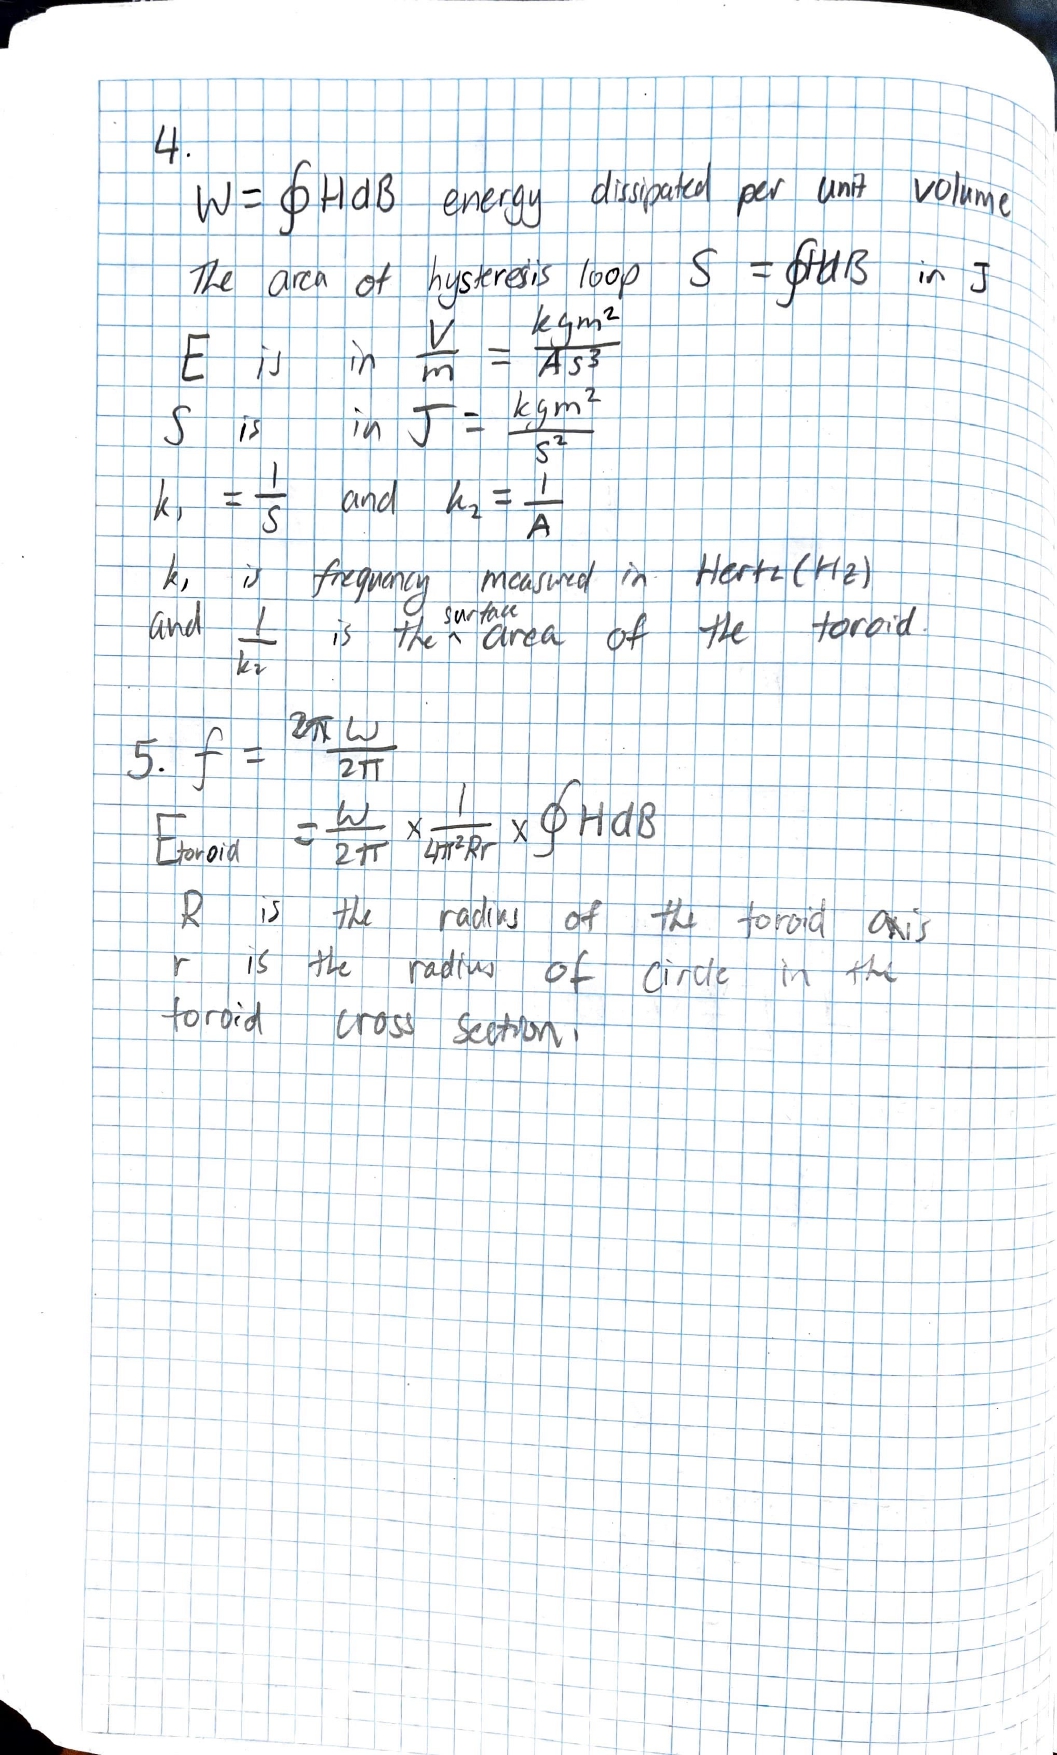 4.
W = ∮HdB energy dissipated per unit volume
The area of hysteresis loop S = ∮HdB in J
E is in V/m = kgm²/As³
S is in J = kgm²/s²
k₁ = 1/S and k₂ = 1/A
k₁ is frequency measured in Hertz (Hz)
and 1/k₂ is the surface area of the toroid.
5. f = ω/2π
E toroid = ω/2π × 1/4π²Rr × ∮HdB
R is the radius of the toroid axis
r is the radius of circle in the
toroid cross section.